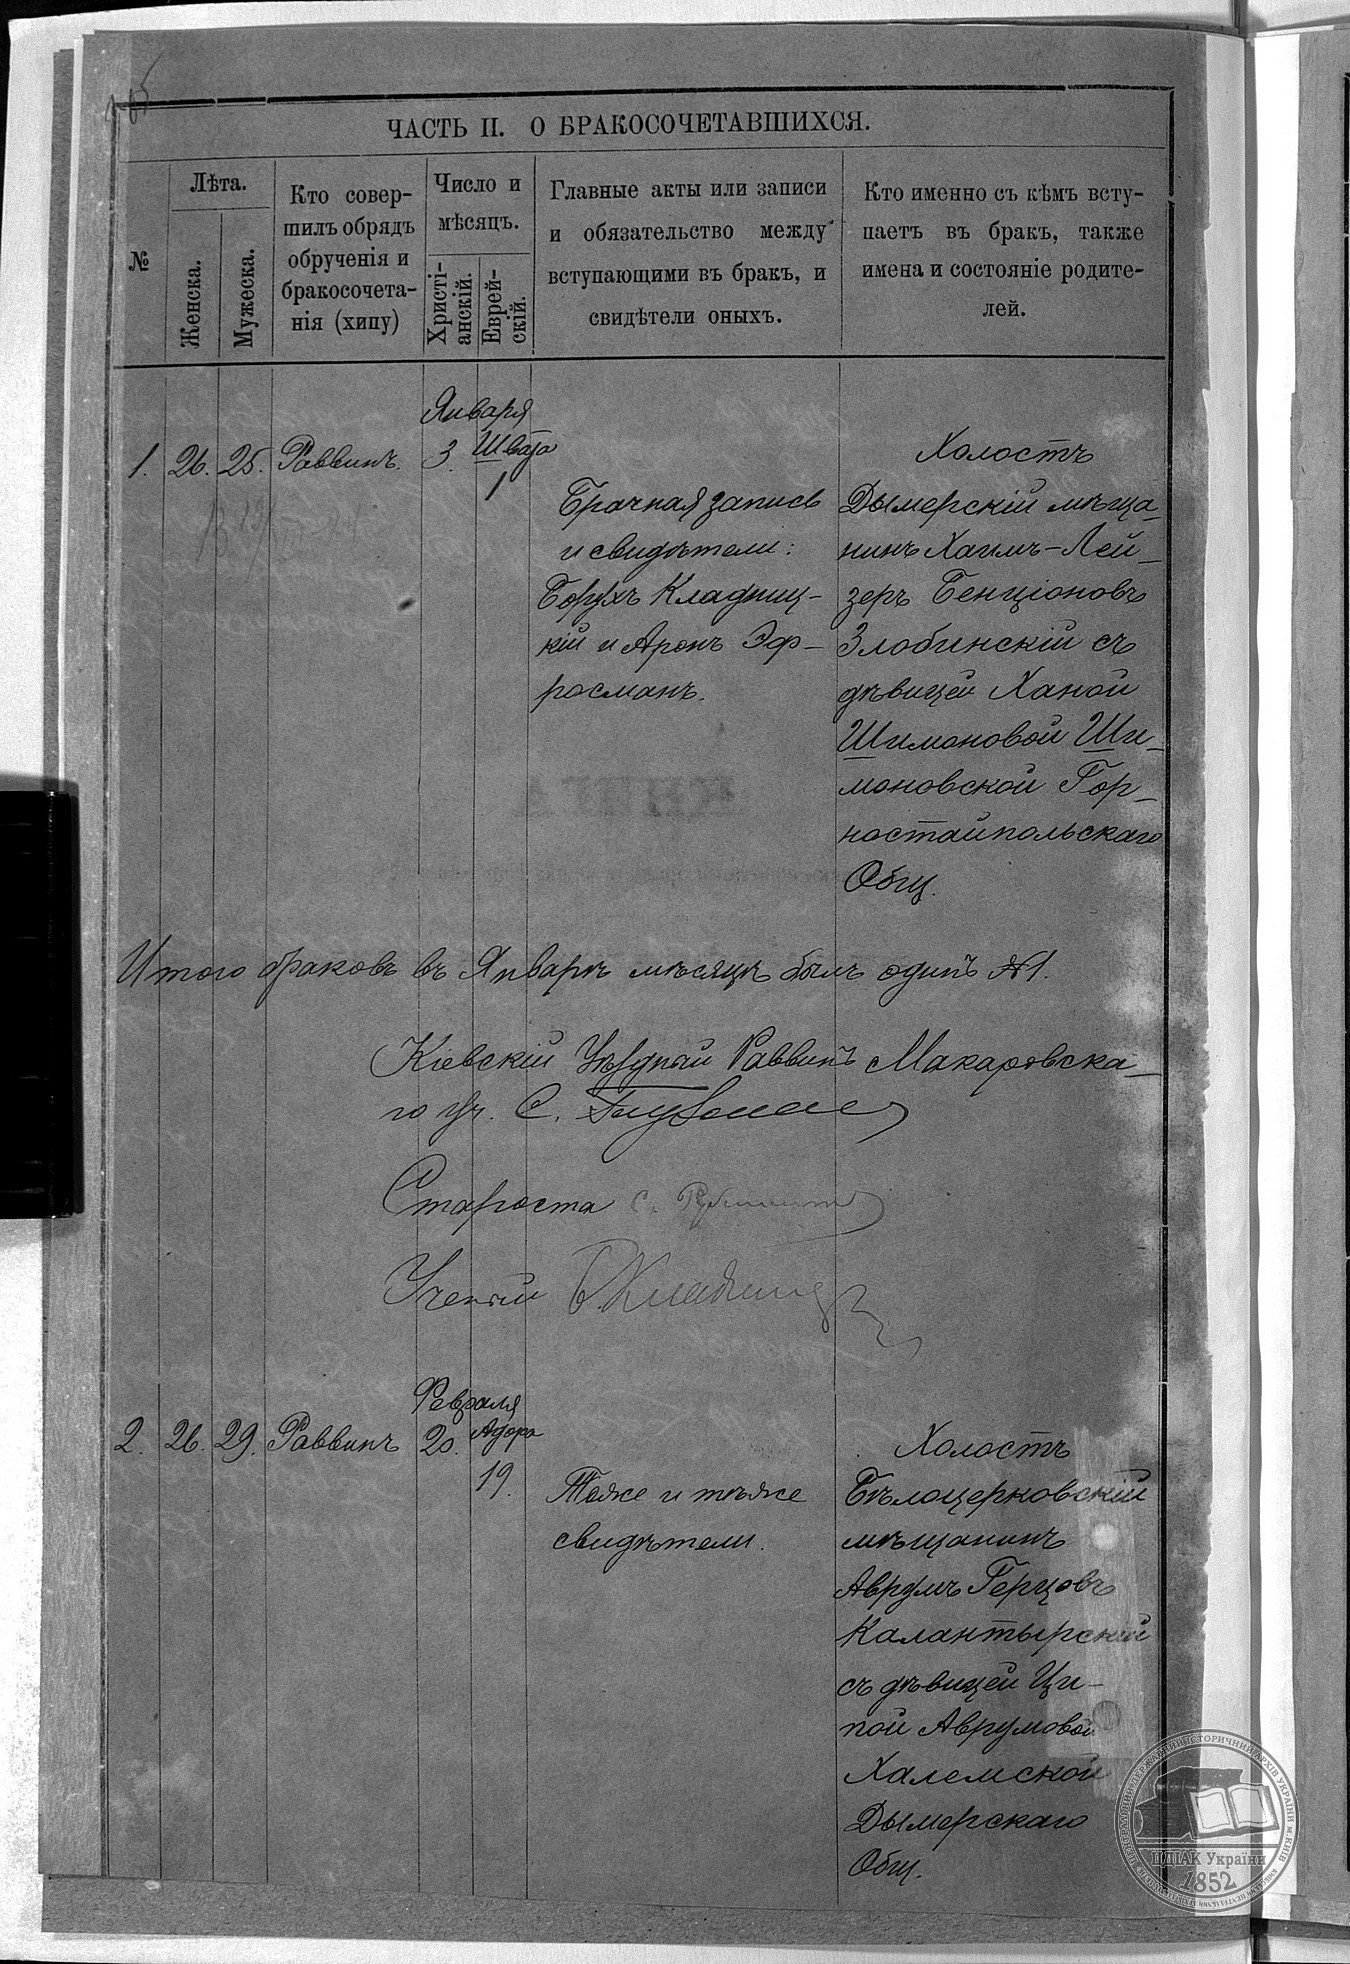 ЧАСТЬ II. О БРАКОСОЧЕТАВШИХСЯ.
№
Лѣта.
Женска.
Мужеска.
Кто совер-
шилъ обрядъ
обрученія и
бракосочета-
нія (хипу)
Число и
мѣсяцъ.
Христі-
анскій.
Еврей-
скій.
Главные акты или записи
и обязательство между
вступающими въ бракъ, и
свидѣтели оныхъ.
Кто именно съ кѣмъ всту-
паетъ въ бракъ, также
имена и состояніе родите-
лей.
Января
1. 26. 25. Раввинъ. 3. Швата
1
Брачная запись
и свидѣтели:
Борухъ Кладниц-
кій и Аронъ Эф-
росманъ.
Холостъ
Дымерскій мѣща-
нинъ Хаимъ-Лей-
зеръ Бенціоновъ
Злобинскій съ
дѣвицей Ханой
Шимоновой Ши-
моновской Гор-
ностайпольскаго
Общ.
Итого браковъ въ Январѣ мѣсяцѣ былъ одинъ №1.
Кіевскій Уѣздный Раввинъ Макаровска-
го уч. С.
Староста С.
Ученый Б. Кладницк
Февраля
2. 26. 29. Раввинъ 20. Адора
19.
Тоже и тѣже
свидѣтели.
Холостъ
Бѣлоцерковскій
мѣщанинъ
Аврумъ Герцовъ
Калантырскій
съ дѣвицей Ци-
пой Аврумовой
Халемской
Дымерскаго
Общ.
ЦДІАК України
1852